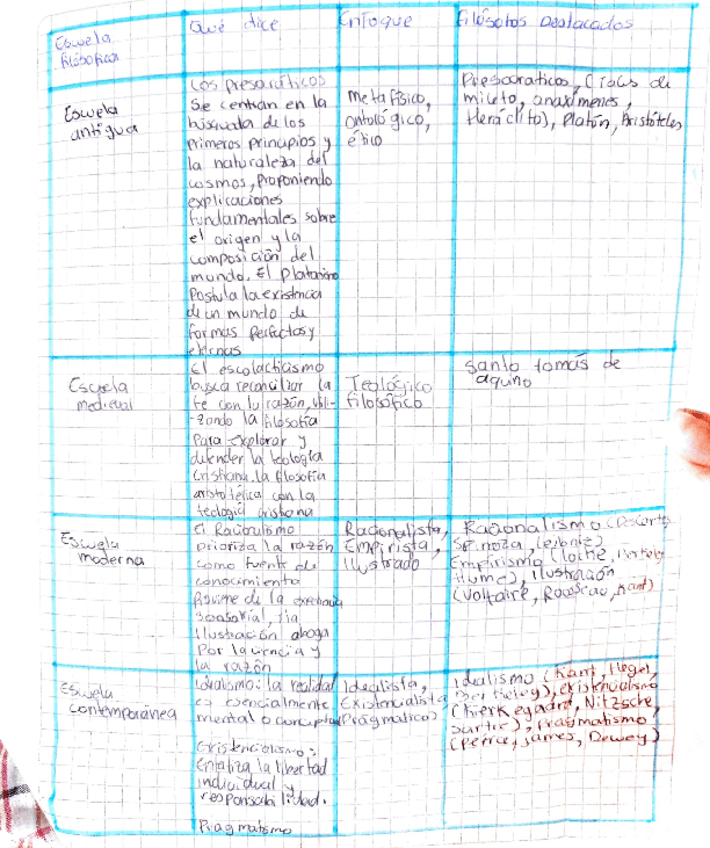 Escuela
filosófica
Qué dice
Enfoque
Filósofos Destacados
Escuela
antigua
Los presocráticos
Se centran en la
búsqueda de los
Primeros principios y
la naturaleza del
cosmos, Proponiendo
explicaciones
fundamentales sobre
el origen y la
composición del
mundo. El platonismo
Postula la existencia
de un mundo de
formas perfectas y
eternas
metafísico,
ontológico,
ético
Presocraticos, (Tales de
mileto, anaxímenes,
Heráclito), Platón, Aristóteles
Escuela
medieval
El escolacticismo
busca reconciliar la
fe con la razón, utili-
-zando la filosofía
Para explorar y
defender la teología
cristiana. la filosofía
aristotélica con la
teología cristiana
Teológico
filosófico
Santo tomás de
aquino
Escuela
moderna
El Racionalismo
prioriza la razón
como fuente de
conocimiento
Proviene de la
sensorial, la
Ilustración aboga
Por la ciencia y
la razón
Racionalista,
Empirista,
Ilustrado
Racionalismo (Descartes
Spinoza, Leibniz)
Empirismo (locke,
Hume), Ilustración
(Voltaire, kant)
Escuela
contemporánea
Idealismo: la realidad
es esencialmente
mental o
Existencialismo:
Enfatiza la libertad
individual y
responsabilidad.
Pragmatismo
Idealista,
Existencialista
Pragmatico
Idealismo (Kant, Hegel,
Berkeley), existencialismo
(kierkegaard, Nitzsche,
Sartre), Pragmatismo
(Peirce, James, Dewey)